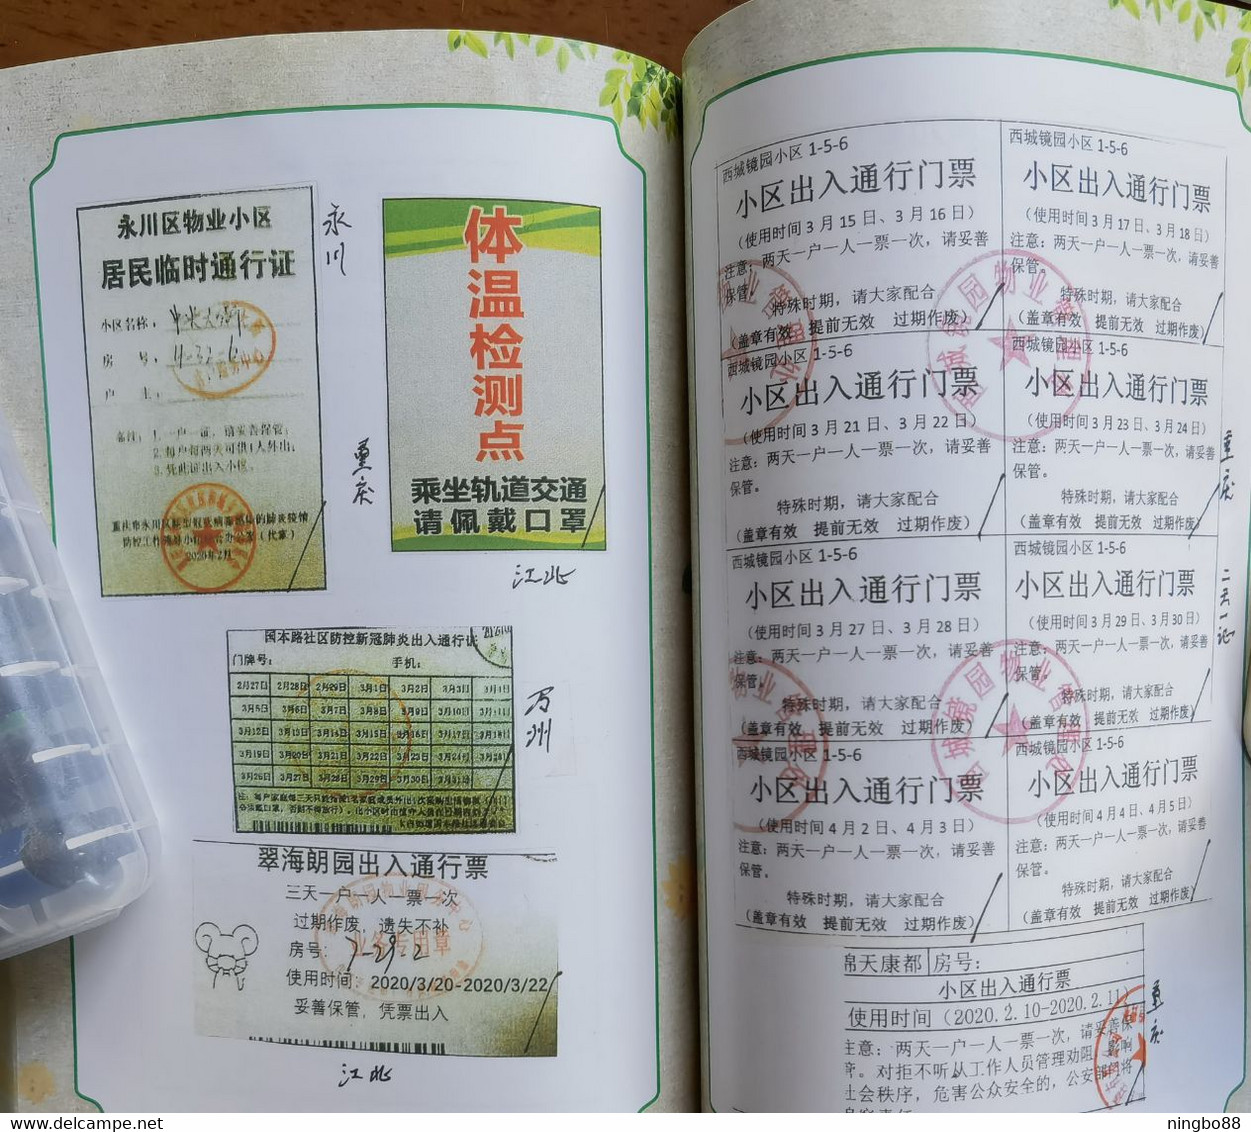 永川区物业小区
居民临时通行证
小区名称:
房 号:
户 主:
备注: 1. 一户一证, 请妥善保管;
2. 每户每两天可供1人外出;
3. 凭此证出入小区。
2020年2月
永川
重庆
体温检测点
乘坐轨道交通
请佩戴口罩
江北
国本路社区防控新冠肺炎出入通行证
门牌号: 手机:
2月27日 2月28日 2月29日 3月1日 3月2日 3月3日 3月4日
3月5日 3月6日 3月7日 3月8日 3月9日 3月10日 3月11日
3月12日 3月13日 3月14日 3月15日 3月16日 3月17日 3月18日
3月19日 3月20日 3月21日 3月22日 3月23日 3月24日 3月25日
3月26日 3月27日 3月28日 3月29日 3月30日 3月31日
万州
翠海朗园出入通行票
三天一户一人一票一次
过期作废, 遗失不补
房号: 7-29-2
使用时间: 2020/3/20-2020/3/22
妥善保管, 凭票出入
江北
西城镜园小区 1-5-6
小区出入通行门票
(使用时间 3 月 15 日、3 月 16 日)
注意: 两天一户一人一票一次, 请妥善
保管。
特殊时期, 请大家配合
(盖章有效 提前无效 过期作废)
西城镜园小区 1-5-6
小区出入通行门票
(使用时间 3 月 17 日、3 月 18 日)
注意: 两天一户一人一票一次, 请妥善
保管。
特殊时期, 请大家配合
(盖章有效 提前无效 过期作废)
西城镜园小区 1-5-6
小区出入通行门票
(使用时间 3 月 21 日、3 月 22 日)
注意: 两天一户一人一票一次, 请妥善
保管。
特殊时期, 请大家配合
(盖章有效 提前无效 过期作废)
西城镜园小区 1-5-6
小区出入通行门票
(使用时间 3 月 23 日、3 月 24 日)
注意: 两天一户一人一票一次, 请妥善
保管。
特殊时期, 请大家配合
(盖章有效 提前无效 过期作废)
西城镜园小区 1-5-6
小区出入通行门票
(使用时间 3 月 27 日、3 月 28 日)
注意: 两天一户一人一票一次, 请妥善
保管。
特殊时期, 请大家配合
(盖章有效 提前无效 过期作废)
西城镜园小区 1-5-6
小区出入通行门票
(使用时间 3 月 29 日、3 月 30 日)
注意: 两天一户一人一票一次, 请妥善
保管。
特殊时期, 请大家配合
(盖章有效 提前无效 过期作废)
西城镜园小区 1-5-6
小区出入通行门票
(使用时间 4 月 2 日、4 月 3 日)
注意: 两天一户一人一票一次, 请妥善
保管。
特殊时期, 请大家配合
(盖章有效 提前无效 过期作废)
西城镜园小区 1-5-6
小区出入通行门票
(使用时间 4 月 4 日、4 月 5 日)
注意: 两天一户一人一票一次, 请妥善
保管。
特殊时期, 请大家配合
(盖章有效 提前无效 过期作废)
重庆
二天一证
锦天康都 房号:
小区出入通行票
使用时间 (2020.2.10-2020.2.11)
注意: 两天一户一人一票一次, 请妥善保
。对拒不听从工作人员管理劝阻, 影响
社会秩序, 危害公众安全的, 公安部门将
重庆
ningbo88